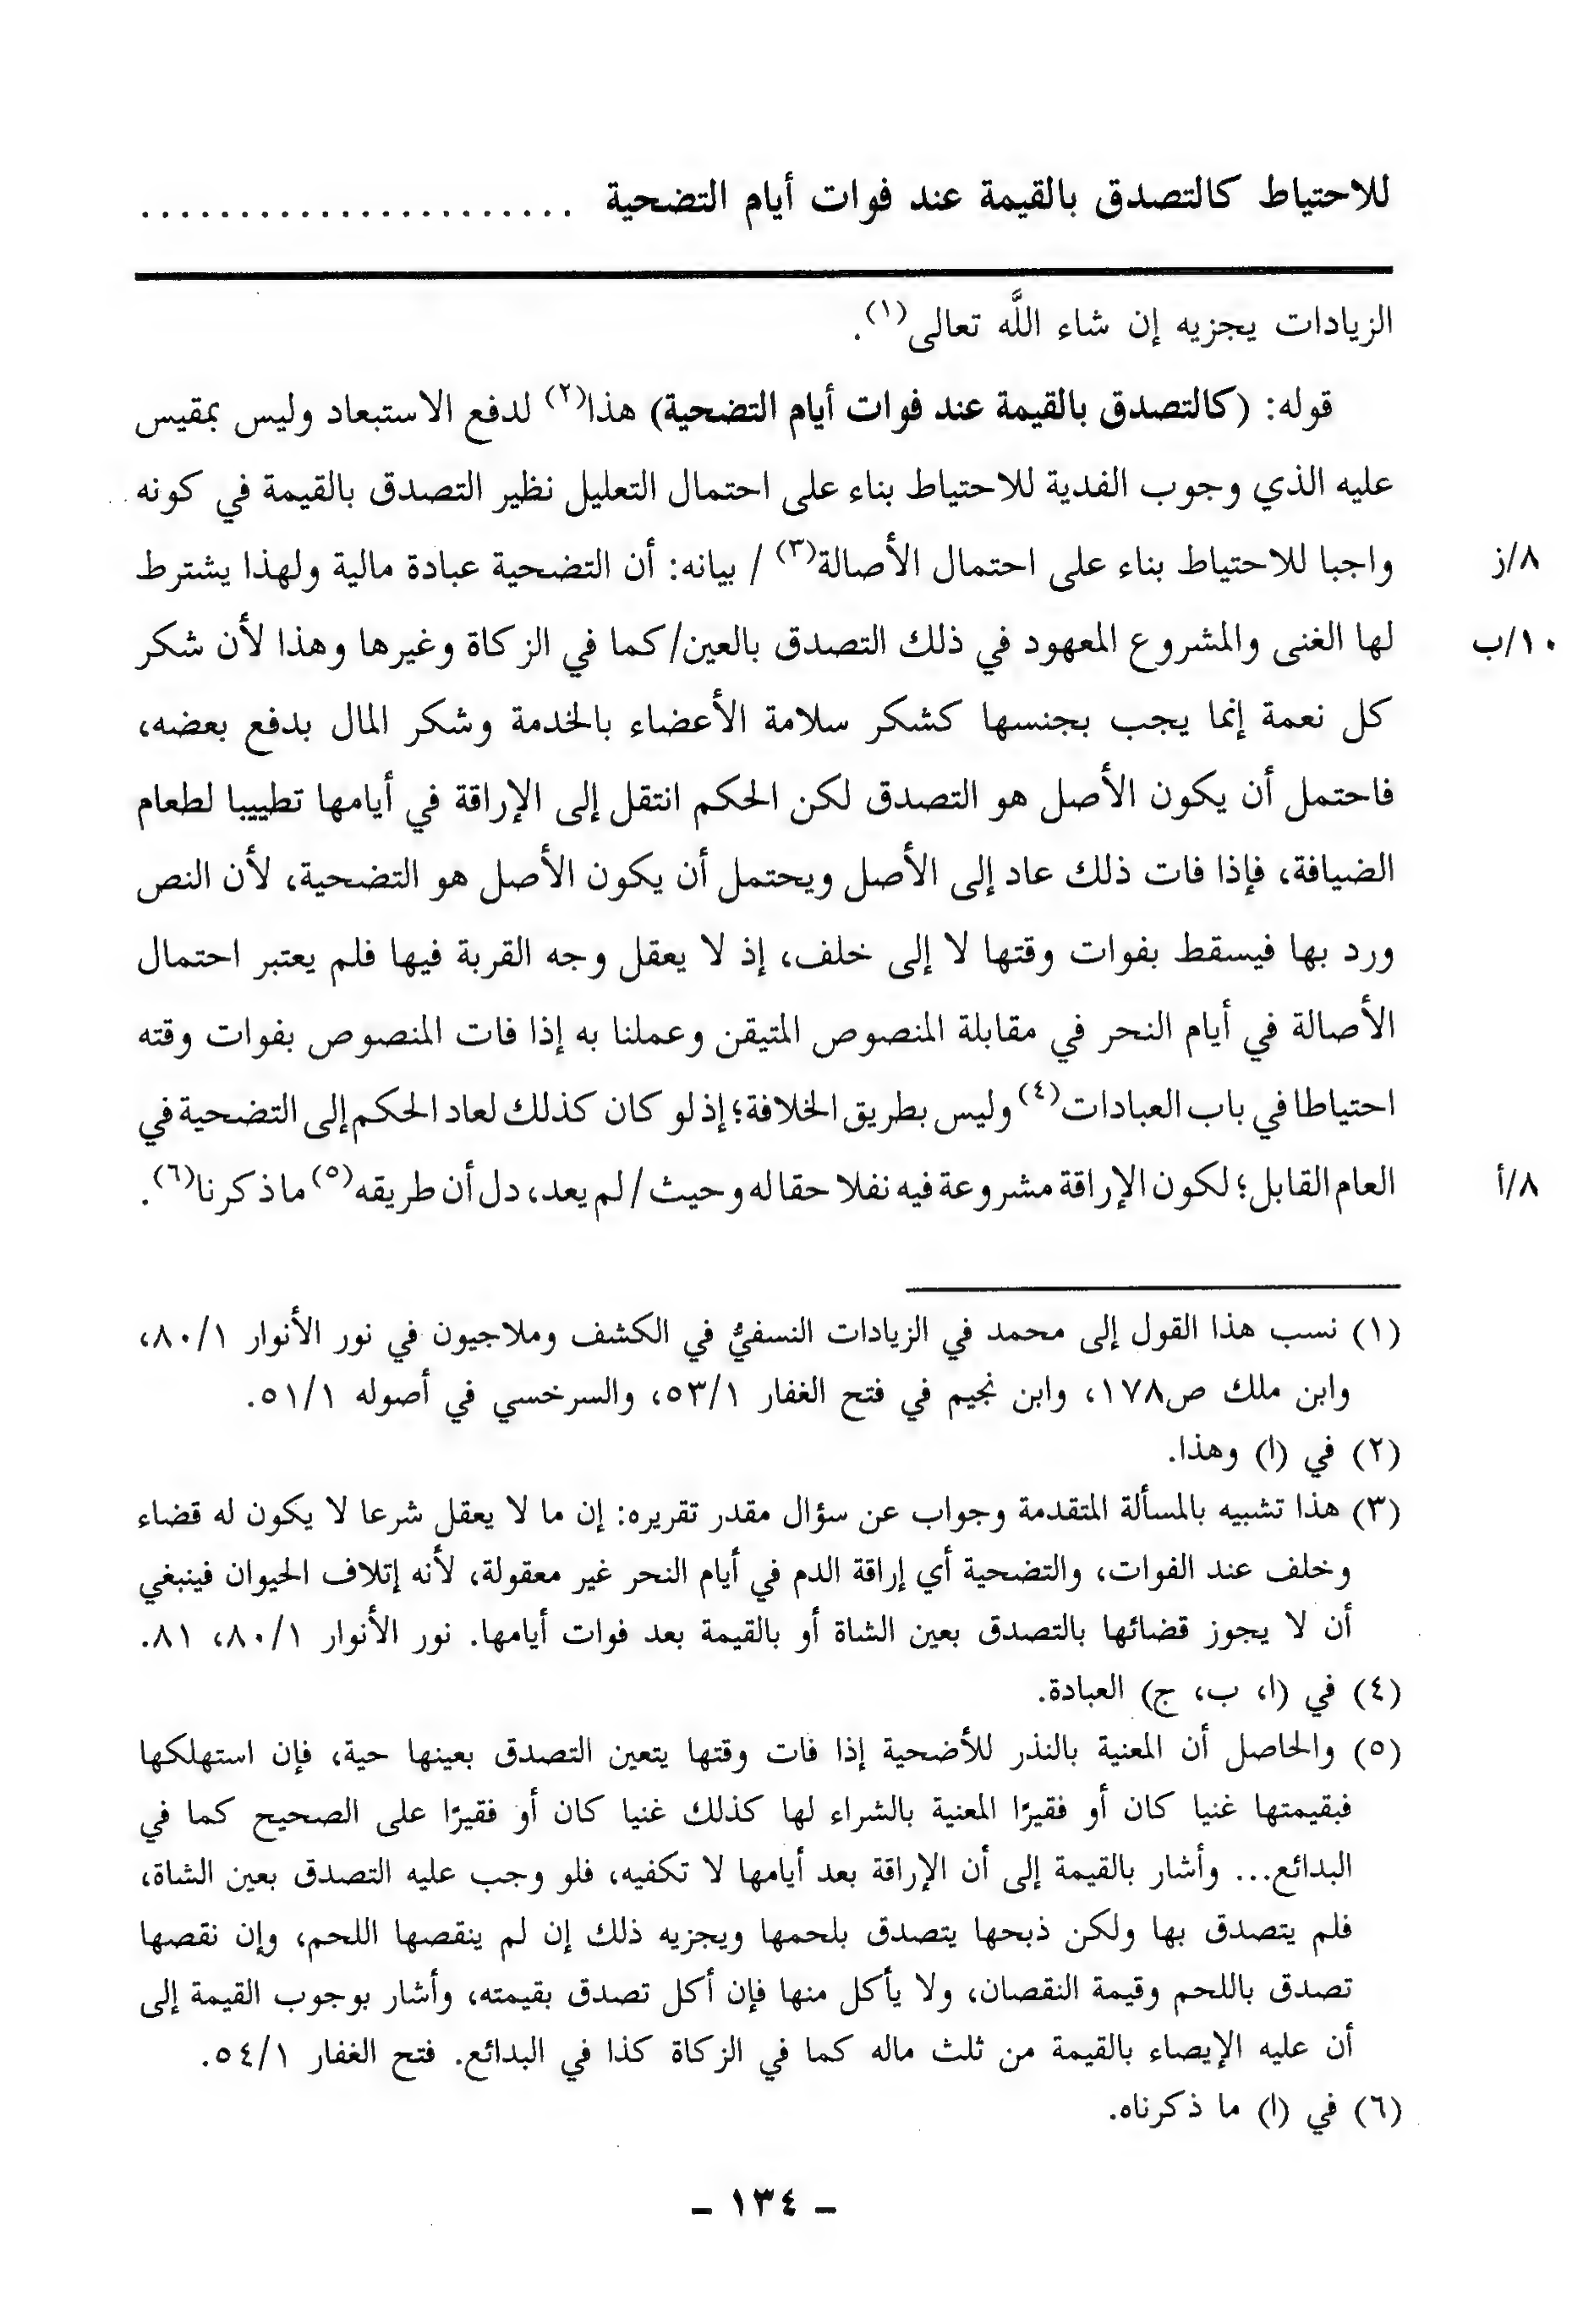 للاحتياط كالتصدق بالقيمة عند فوات أيام التضحية ......................
الزيادات يجزيه إن شاء اللَّه تعالى(١).
قوله: (كالتصدق بالقيمة عند فوات أيام التضحية) هذا(٢) لدفع الاستبعاد وليس بمقيس
عليه الذي وجوب الفدية للاحتياط بناء على احتمال التعليل نظير التصدق بالقيمة في كونه
واجبا للاحتياط بناء على احتمال الأصالة(٣) / بيانه: أن التضحية عبادة مالية ولهذا يشترط
٨/ز
لها الغنى والمشروع المعهود في ذلك التصدق بالعين/ كما في الزكاة وغيرها وهذا لأن شكر
١٠/ب
كل نعمة إنما يجب بجنسها كشكر سلامة الأعضاء بالخدمة وشكر المال بدفع بعضه،
فاحتمل أن يكون الأصل هو التصدق لكن الحكم انتقل إلى الإراقة في أيامها تطييبا لطعام
الضيافة، فإذا فات ذلك عاد إلى الأصل ويحتمل أن يكون الأصل هو التضحية، لأن النص
ورد بها فيسقط بفوات وقتها لا إلى خلف، إذ لا يعقل وجه القربة فيها فلم يعتبر احتمال
الأصالة في أيام النحر في مقابلة المنصوص المتيقن وعملنا به إذا فات المنصوص بفوات وقته
احتياطا في باب العبادات(٤) وليس بطريق الخلافة؛ إذ لو كان كذلك لعاد الحكم إلى التضحية في
العام القابل؛ لكون الإراقة مشروعة فيه نفلا حقا له وحيث / لم يعد، دل أن طريقه(٥) ما ذكرنا(٦).
٨/أ
(١) نسب هذا القول إلى محمد في الزيادات النسفيُّ في الكشف وملاجيون في نور الأنوار ٨٠/١،
وابن ملك ص١٧٨، وابن نجيم في فتح الغفار ٥٣/١، والسرخسي في أصوله ٥١/١.
(٢) في (ا) وهذا.
(٣) هذا تشبيه بالمسألة المتقدمة وجواب عن سؤال مقدر تقريره: إن ما لا يعقل شرعا لا يكون له قضاء
وخلف عند الفوات، والتضحية أي إراقة الدم في أيام النحر غير معقولة، لأنه إتلاف الحيوان فينبغي
أن لا يجوز قضائها بالتصدق بعين الشاة أو بالقيمة بعد فوات أيامها. نور الأنوار ٨٠/١، ٨١.
(٤) في (ا، ب، ج) العبادة.
(٥) والحاصل أن المعنية بالنذر للأضحية إذا فات وقتها يتعين التصدق بعينها حية، فإن استهلكها
فبقيمتها غنيا كان أو فقيرًا المعنية بالشراء لها كذلك غنيا كان أو فقيرًا على الصحيح كما في
البدائع... وأشار بالقيمة إلى أن الإراقة بعد أيامها لا تكفيه، فلو وجب عليه التصدق بعين الشاة،
فلم يتصدق بها ولكن ذبحها يتصدق بلحمها ويجزيه ذلك إن لم ينقصها اللحم، وإن نقصها
تصدق باللحم وقيمة النقصان، ولا يأكل منها فإن أكل تصدق بقيمته، وأشار بوجوب القيمة إلى
أن عليه الإيصاء بالقيمة من ثلث ماله كما في الزكاة كذا في البدائع. فتح الغفار ٥٤/١.
(٦) في (ا) ما ذكرناه.
- ١٣٤ -